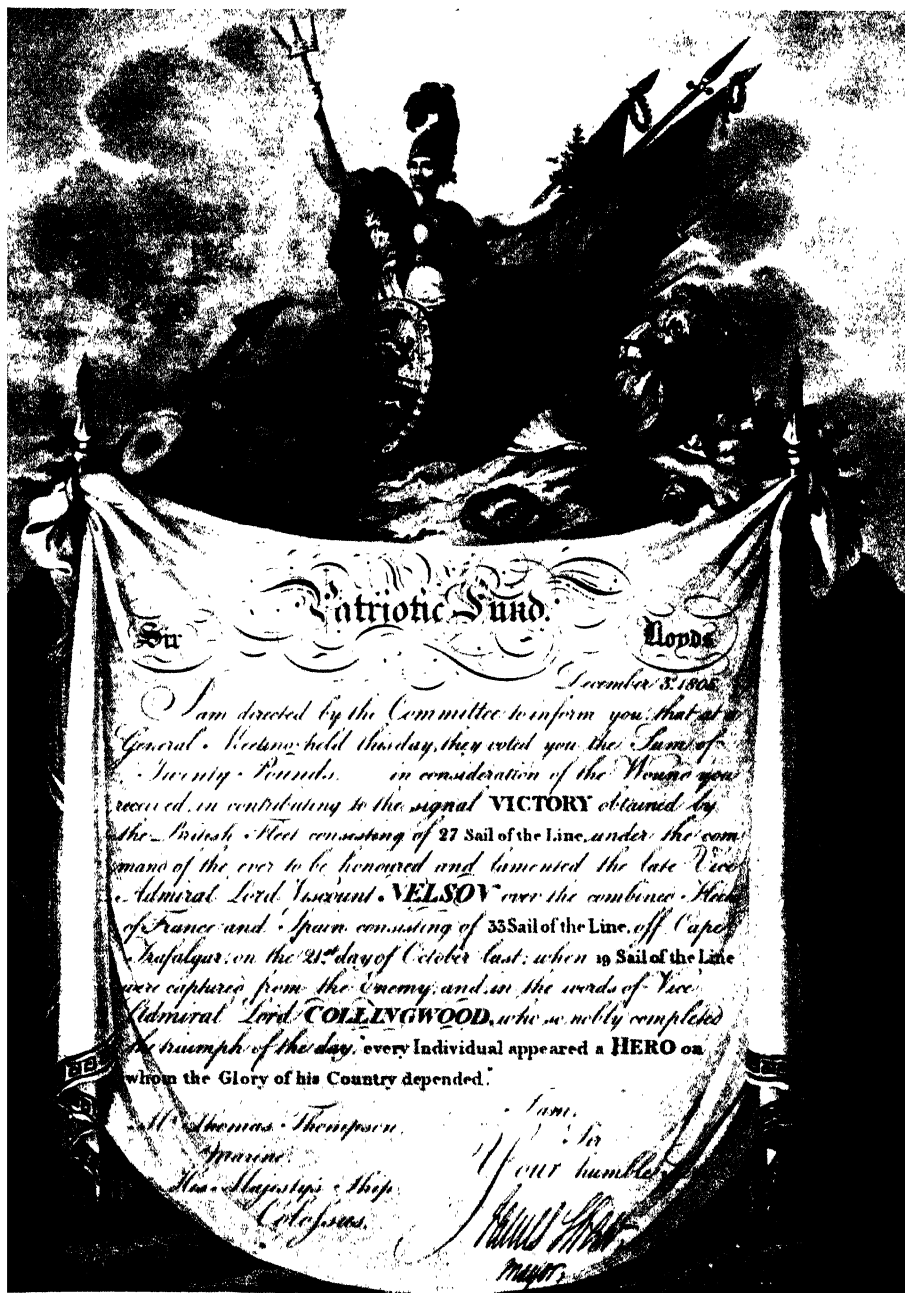 Patriotic Fund.
Sir Lloyds
December 3. 1805
I am directed by the Committee to inform you, that at a
General Meeting held this day, they voted you the Sum of
Twenty Pounds. in consideration of the Wound you
received, in contributing to the signal VICTORY obtained by
the British Fleet consisting of 27 Sail of the Line, under the com
mand of the ever to be honoured and lamented the late Vice
Admiral Lord Viscount NELSON over the combined Fleet
of France and Spain consisting of 33 Sail of the Line, off Cape
Trafalgar, on the 21st day of October last; when 19 Sail of the Line
were captured from the Enemy, and in the words of Vice
Admiral Lord COLLINGWOOD, who so nobly completed
the triumph of the day, "every Individual appeared a HERO on
whom the Glory of his Country depended."
I am,
Sir
Your humble
Mr Thomas Thompson.
Marine.
His Majesty's Ship
Colossus.
James Shaw
Mayor,